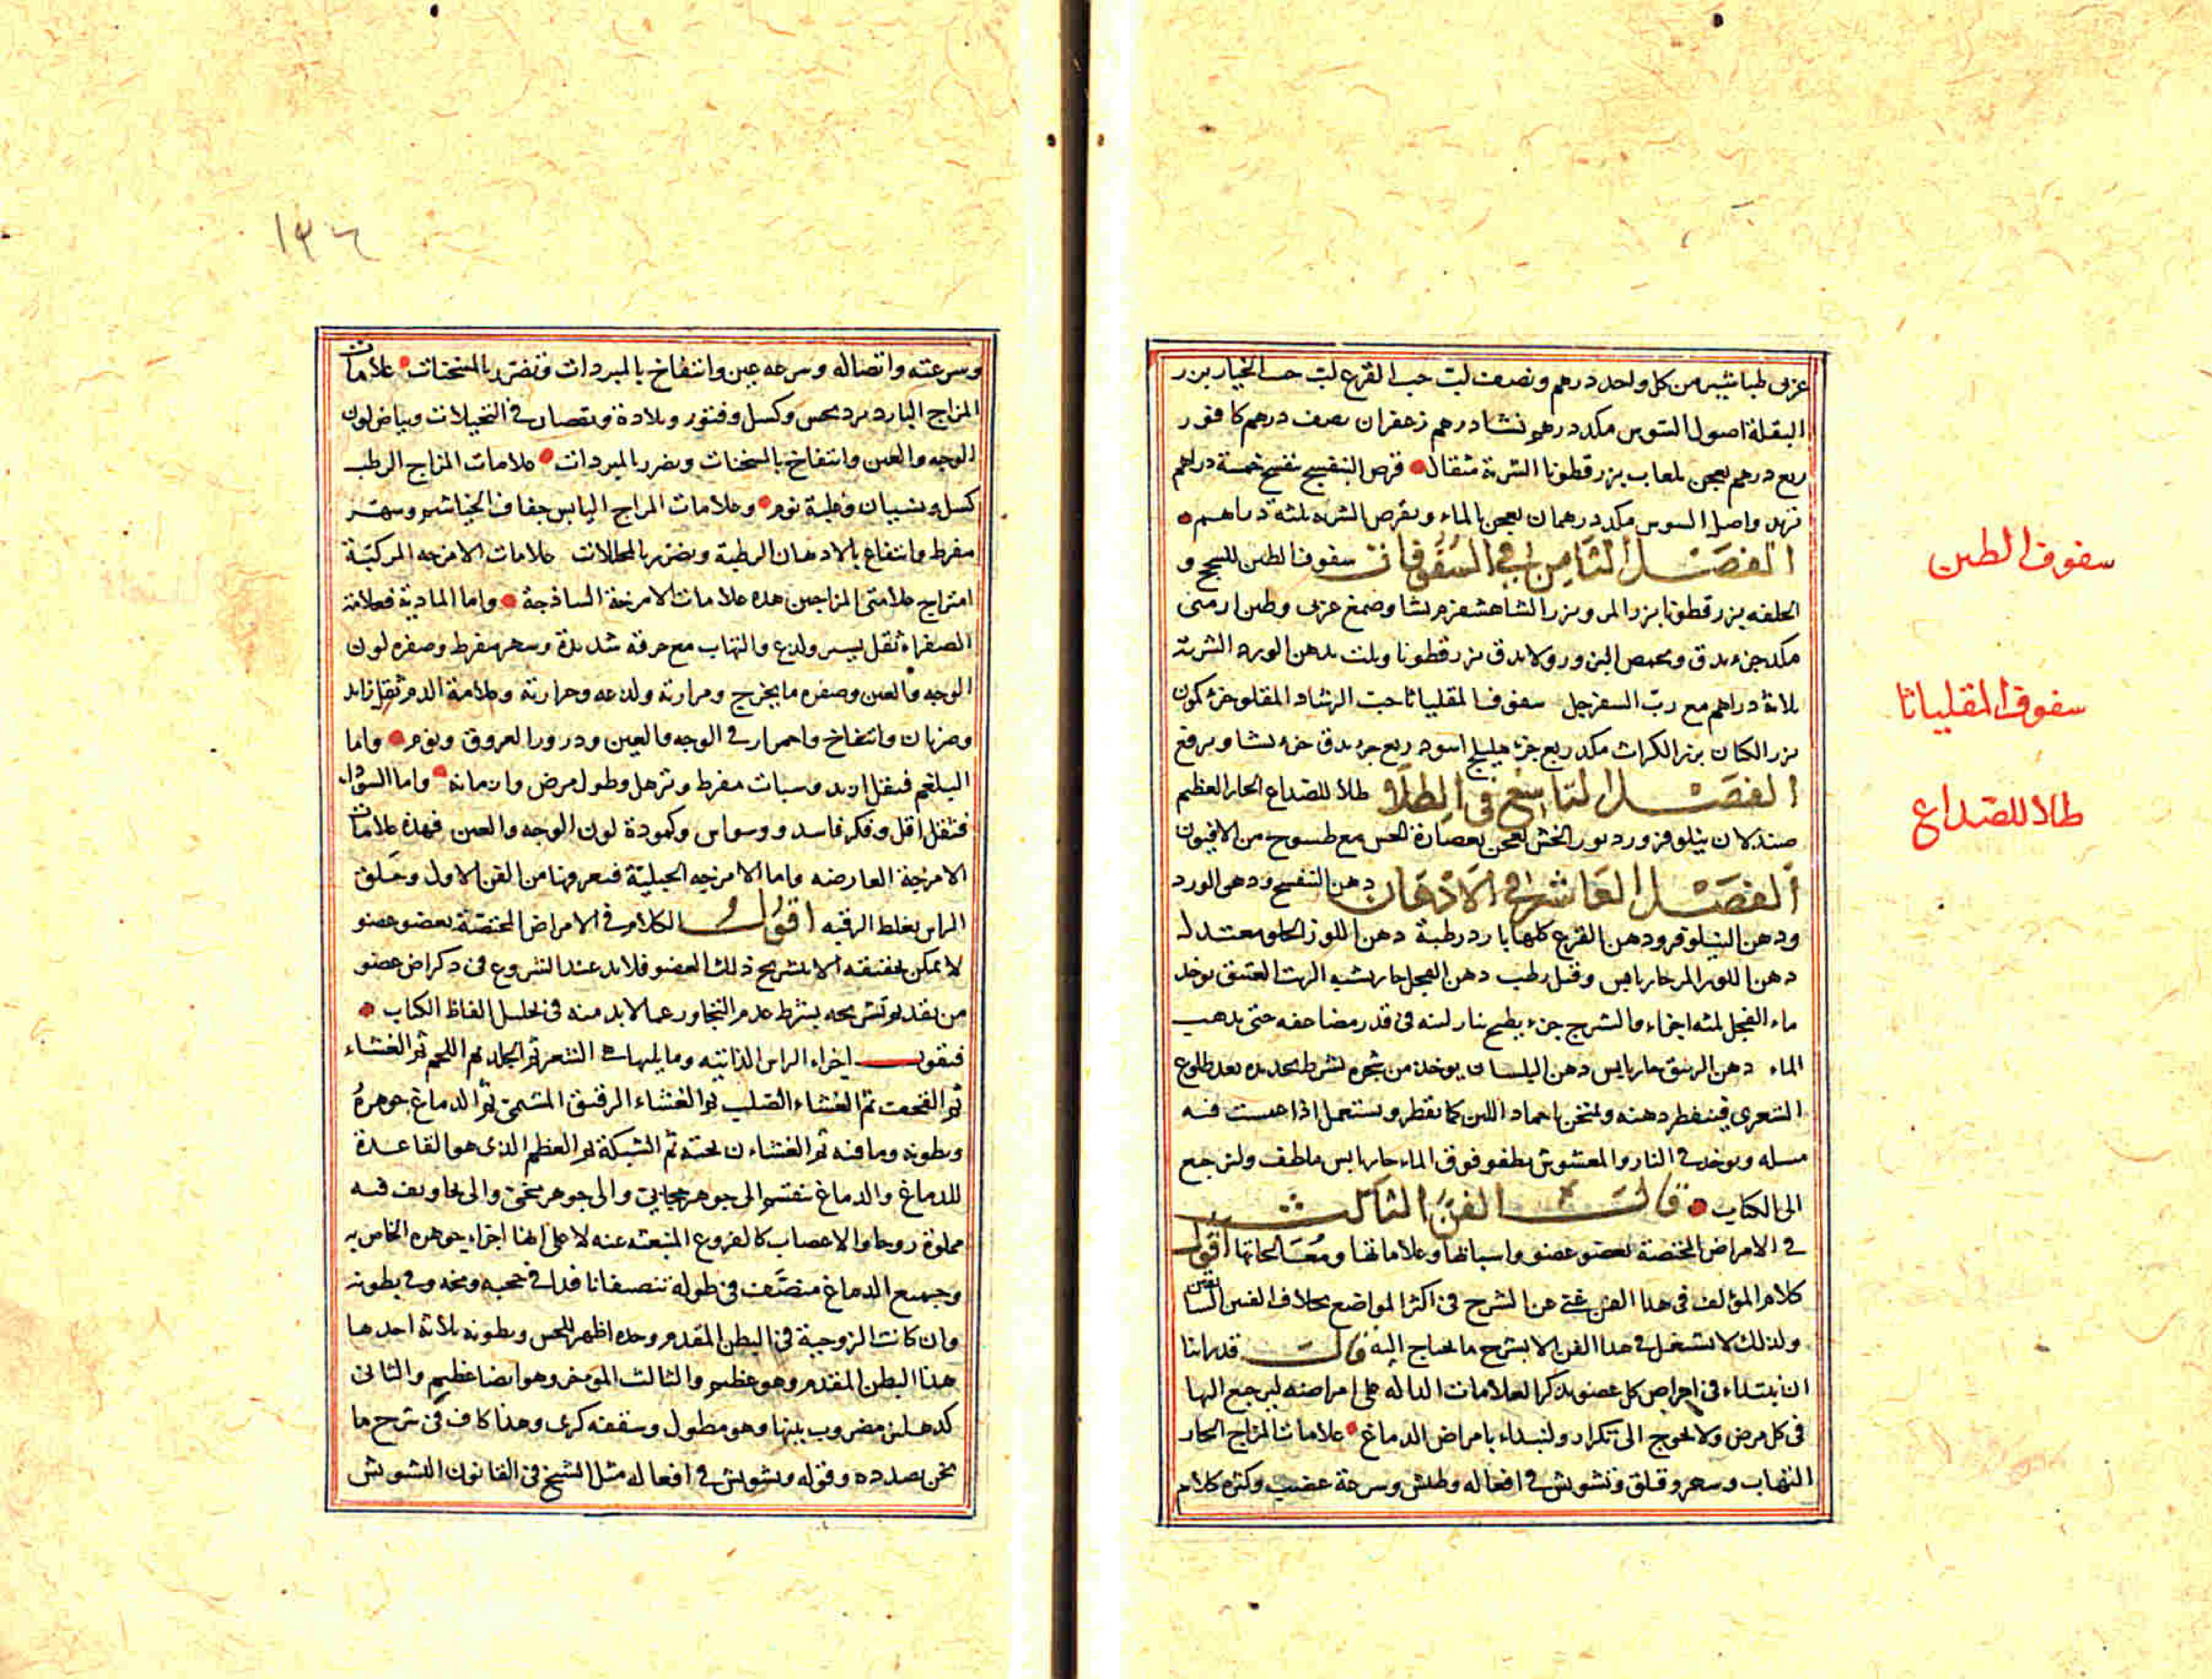 عربى طباشير من كل واحد درهم ونصف لب حب القرع لب حب الخيار بزر
البقلة اصول السوس مكد درهم نشا درهم زعفران نصف درهم كافور
ربع درهم يعجن بلعاب بزر قطونا الشربة مثقال قرص البنفسج بنفسج خمسة دراهم
تربد واصل السوس مكد درهمان يعجن بالماء ويقرص الشربه ثلثة دراهم
الفصل الثامن في السفوفات سفوف الطين للسحج و
الخلفه بزر قطونا بزر المر وبزر الشاهسفرم نشا وصمغ عربى وطين ارمنى
مكد جزء يدق ويحمص البزور ولا يدق بزر قطونا ويلت بدهن الورد الشربة
ثلاثة دراهم مع رب السفرجل سفوف المقلياثا حب الرشاد المقلو جزء كمون
بزر الكتان بزر الكراث مكد ربع جزء هليلج اسود ربع جزء يدق جزء نشا ويرفع
الفصل التاسع في الطلا طلا للصداع الحار العظيم
صندلان نيلوفر ورد بزر الخس يعجن بعصارة الخس مع طسوج من الافيون
الفصل العاشر في الادهان دهن البنفسج ودهن الورد
ودهن النيلوفر ودهن القرع كلها بارد رطبة دهن اللوز الحلو معتدل
دهن اللوز المر حار يابس وقيل رطب دهن الفجل حار يشبه الزيت العتيق يوخذ
ماء الفجل ثلثه اجزاء والشيرج جزء يطبخ بنار لينه فى قدر مضاعفه حتى يذهب
الماء دهن الزنبق حار يابس دهن البلسان يوخذ من شجره بشرط بحديده بعد طلوع
الشعرى فيقطر دهنه ويمتحن باجماد اللبن كما يقطر ويشتعل اذا غمست فيه
مسله ويوخذ في النار والمغشوش يطفو فوق الماء حار يابس ملطف ولنرجع
الى الكتاب قال الفن الثالث
في الامراض المختصة بعضو عضو واسبابها وعلاماتها ومعالجاتها اقول
كلام المؤلف فى هذا الفن غنى عن الشرح فى اكثر المواضع بخلاف الفنين السابقين
ولذلك لا نشتغل في هذا الفن الا بشرح ما يحتاج اليه قال قد راينا
ان نبتداء فى امراض كل عضو بذكر العلامات الداله على امراضه ليرجع اليها
فى كل مرض ولا نحوج الى تكرار ولنبداء بامراض الدماغ علامات المزاج الحار
التهاب وسهر وقلق وتشويش في افعاله وطيش وسرعة غضب وكثره كلام
سفوف الطين
سفوف المقلياثا
طلا للصداع
١٣٤
وسرعته واتصاله وسرعه عين وانتفاع بالمبردات وتضرر بالمسخنات علامات
المزاج البارد برد بحس وكسل وفتور وبلادة ونقصان في التخيلات وبياض لون
الوجه والعين وانتفاع بالمسخنات وتضرر بالمبردات علامات المزاج الرطب
كسل ونسيان وغلبة نوم وعلامات المزاج اليابس جفاف الخياشيم وسهر
مفرط وانتفاع بالادهان الرطبة وتضرر بالمحللات علامات الامزجه المركبة
امتزاج علامتى المزاجين هذه علامات الامزجة الساذجة واما المادية فعلامة
الصفراء ثقل يسير ولذع والتهاب مع حرقه شديدة وسهر مفرط وصفره لون
الوجه والعين وصفره ما يخرج ومرارته ولذعه وحرارته وعلامة الدم ثقل زايد
وضربان وانتفاخ واحمرار في الوجه والعين ودرور العروق ونوم واما
البلغم فثقل ازيد وسبات مفرط وترهل وطول مرض وازمانه واما السودا
فثقل اقل وفكر فاسد ووسواس وكمودة لون الوجه والعين فهذه علامات
الامزجة العارضه واما الامزجه الجبلية فتعرفها من الفن الاول وخلق
الراس بغلظ الرقبه اقول الكلام في الامراض المختصة بعضو عضو
لا يمكن تحقيقه الا بتشريح ذلك العضو فلابد عند الشروع فى ذكر امراض عضو
من تقديم تشريحه بشرط عدم التجاوز عما لابد منه فى تحليل الفاظ الكتاب
فنقول اجزاء الراس الذاتيه وما يليها هى الشعر ثم الجلد ثم اللحم ثم الغشاء
ثم القحف ثم الغشاء الصلب ثم الغشاء الرقيق المشيمى ثم الدماغ جوهره
وبطونه وما فيه ثم الغشاءن تحته ثم الشبكة ثم العظم الذى هو القاعدة
للدماغ والدماغ ينقسم الى جوهر حجابى والى جوهر مخى والى تجاويف فيه
مملوة روحا والاعصاب كالفروع المنبعثه عنه لا على انها اجزاء جوهره الخاص به
وجميع الدماغ منصف فى طوله تنصيفا نافذا في حجبه ومخه وفي بطونه
وان كانت الزوجية فى البطن المقدم وحده اظهر للحس وبطونه ثلاثة احدها
هذا البطن المقدم وهو عظيم والثالث الموخر وهو ايضا عظيم والثانى
كدهليز مضروب بينها وهو مطول وسقفه كرى وهذا كاف فى شرح ما
نحن بصدده وقوله وتشويش في افعاله مثل الشيخ فى القانون التشويش